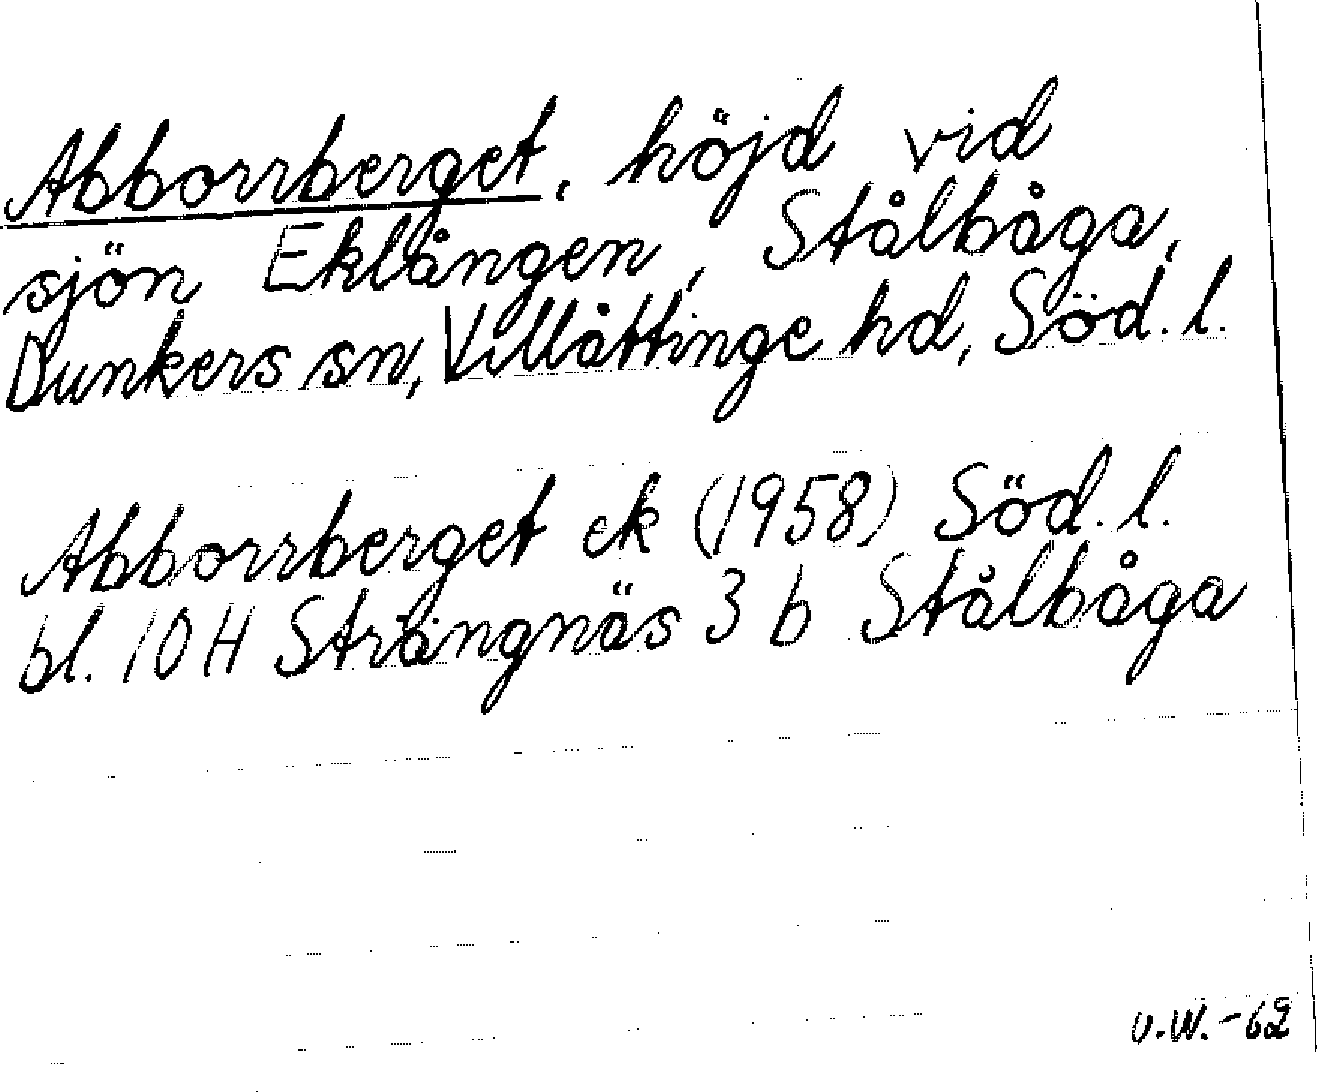 Abborrberget, höjd vid
sjön Eklången, Stålbåga,
Dunkers sn, Villåttinge hd, Söd. l.
Abborrberget ek (1958) Söd. l.
bl. 10 H Strängnäs 3 b Stålbåga
v.W.-62